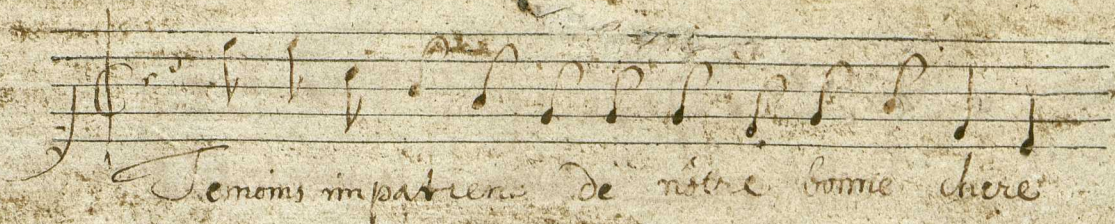 Temoins impatiens de nôtre bonne chere